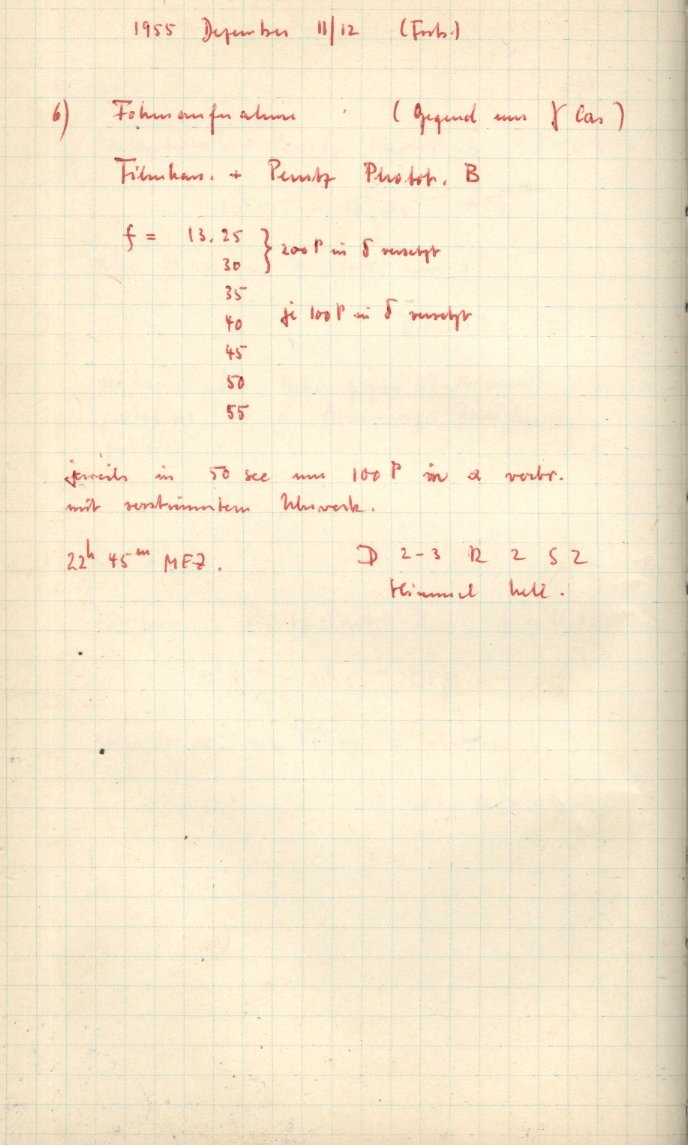 1955 Dezember 11/12 (Forts.)
6) Fokusaufnahme (Gegend um γ Cas)
Filmkass. + Perutz Photot. B
f = 13.25 } 200 P in δ versetzt
30
35
40 je 100 P in δ versetzt
45
50
55
jeweils in 50 sec um 100 P in α verbr.
mit verstimmtem Uhrwerk.
22h 45m MEZ. D 2-3 R 2 S 2
Himmel hell.